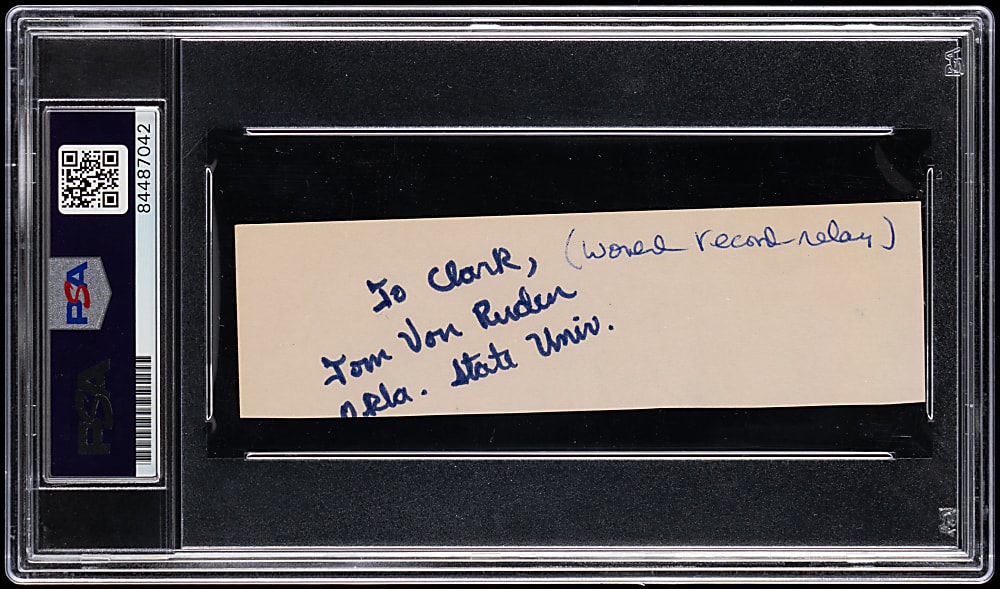 84487042
PSA
PSA
To Clark, (World record relay)
Tom Von Ruden
Okla. State Univ.